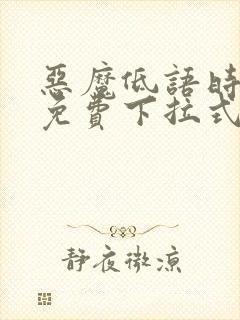 惡魔低語時
免費下拉式
靜夜微涼